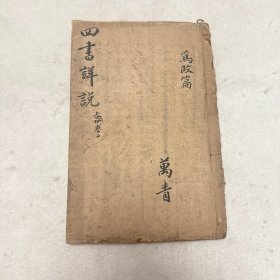 四書詳說
為政篇
萬青